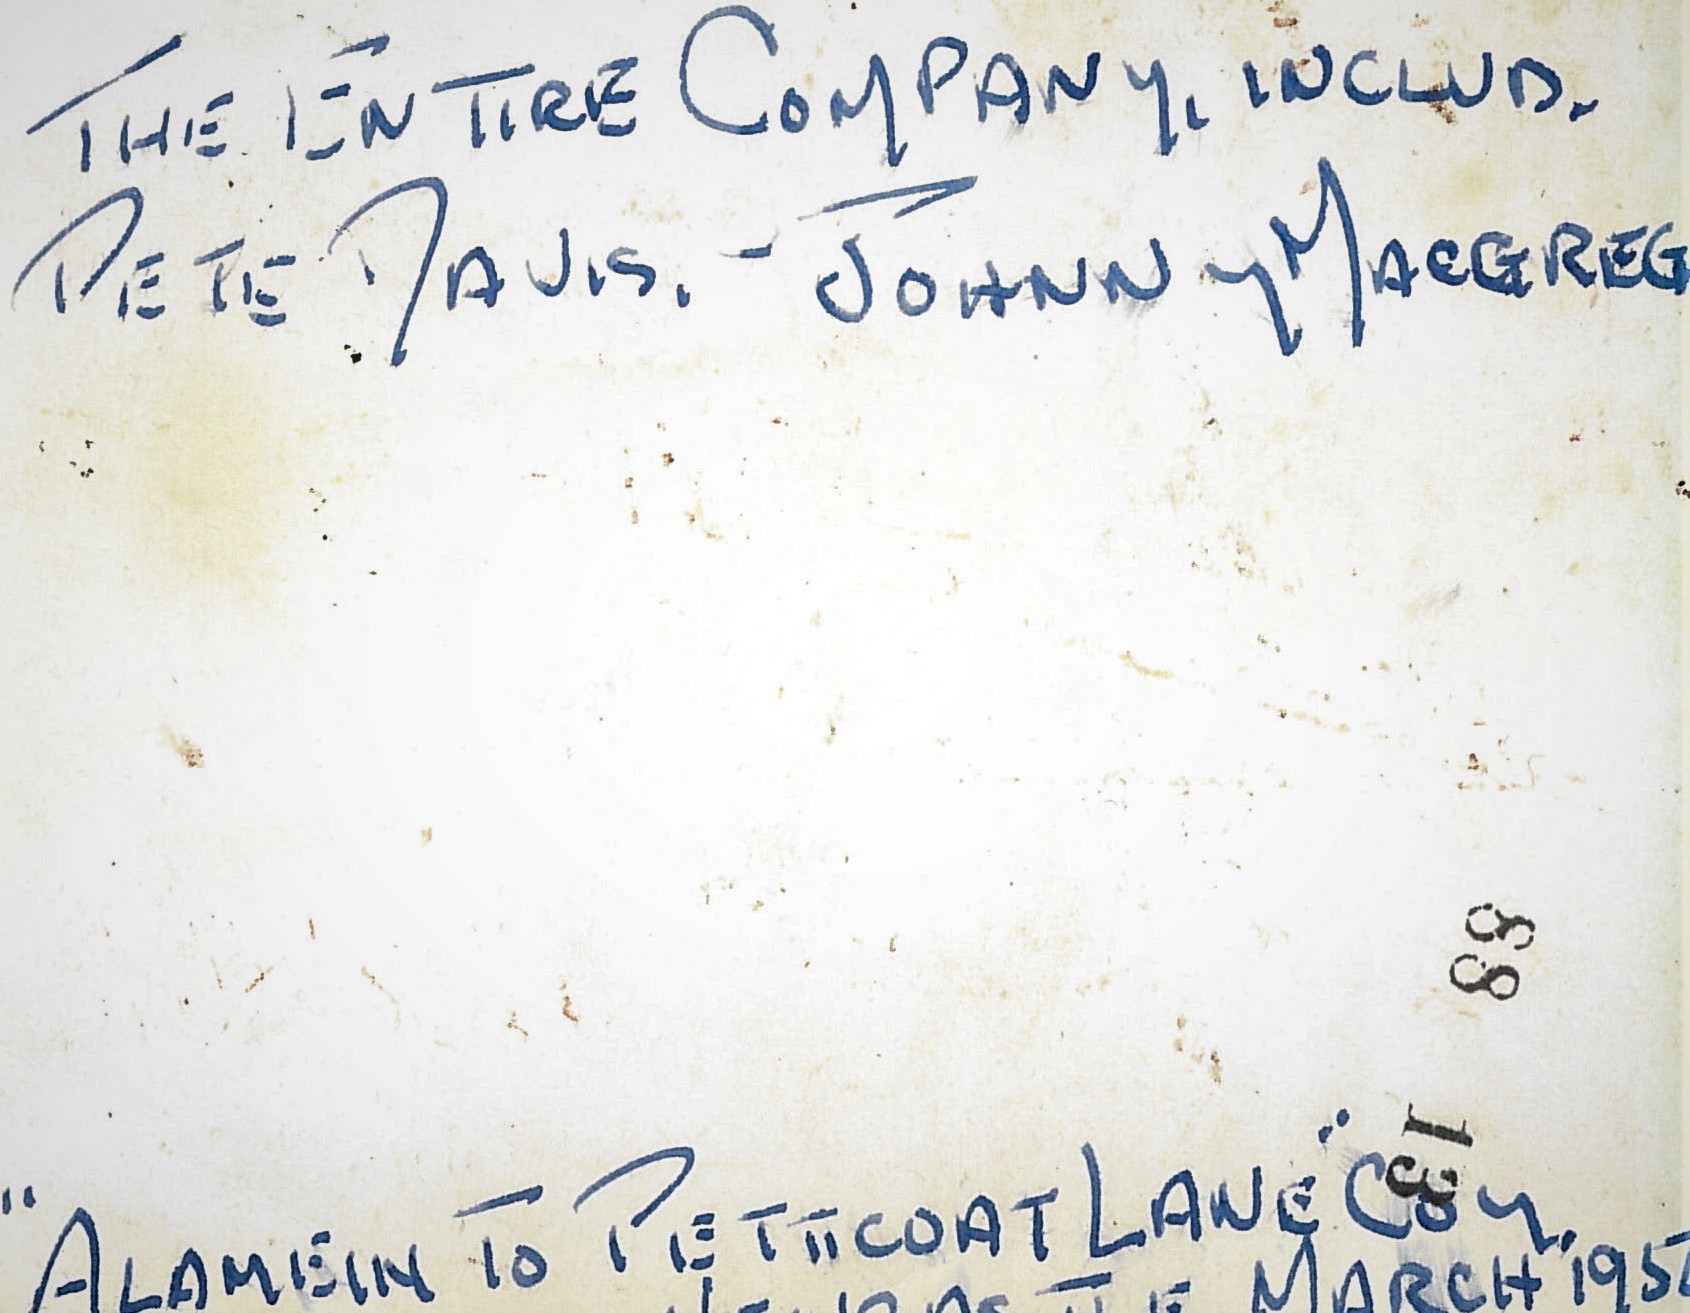 THE ENTIRE COMPANY, INCLUD.
PETE DAVIS. - JOHNNY MACGREG
58
13
"ALAMEIN TO PETTICOAT LANE" COY.
MARCH 195